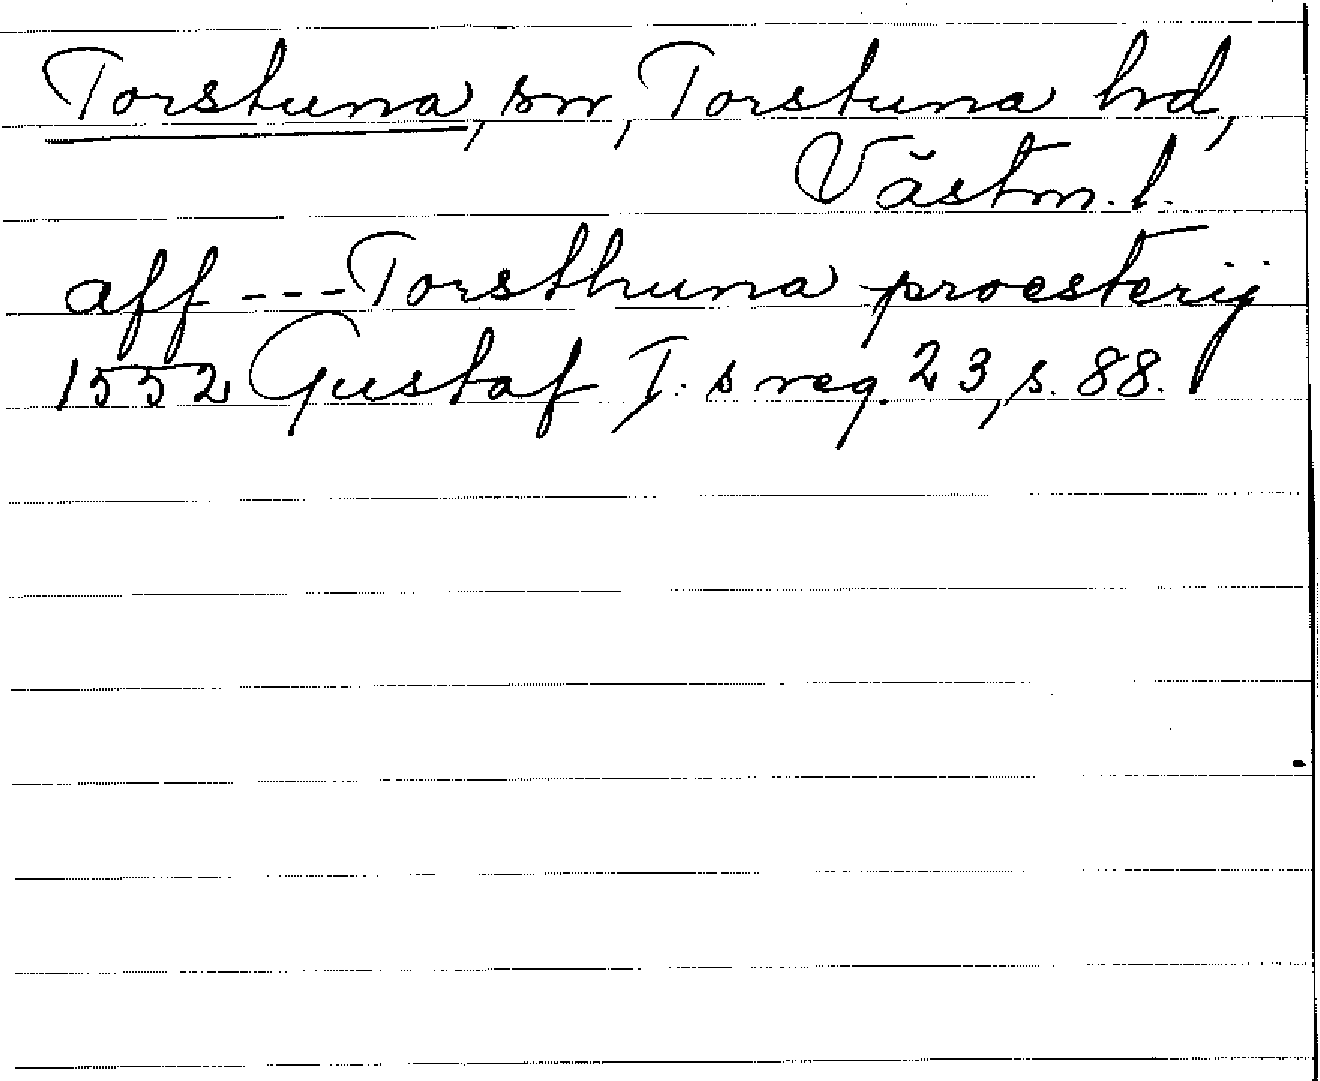 Torstuna, sn, Torstuna hd,
Västm. l.
aff --- Torsthuna proesterij
1552 Gustaf I:s reg. 23, s. 88.